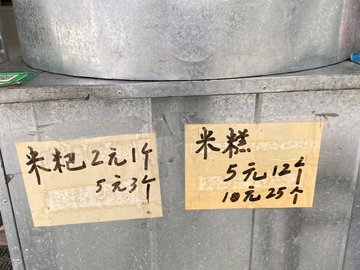 米粑2元1个
5元3个
米糕
5元12个
10元25个